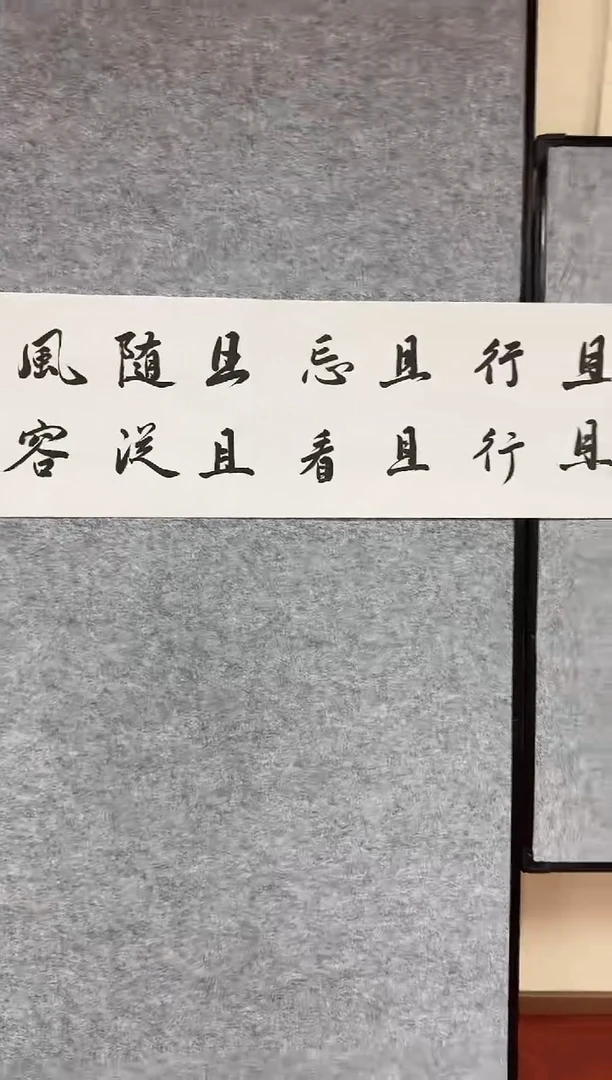 且行且忘且随風
且行且看且從容